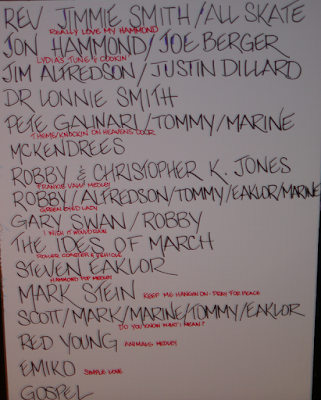 REV. JIMMIE SMITH/ALL SKATE
REALLY LOVE MY HAMMOND
JON HAMMOND/JOE BERGER
LYDIA'S TUNE & COOKIN
JIM ALFREDSON/JUSTIN DILLARD
DR LONNIE SMITH
PETE GALINARI/TOMMY/MARINE
THEME/KNOCKIN ON HEAVENS DOOR
MCKENDREES
ROBBY & CHRISTOPHER K. JONES
FRANKIE VALLI MEDLEY
ROBBY/ALFREDSON/TOMMY/EAKLOR/MARINE
GREEN EYED LADY
GARY SWAN/ROBBY
I WISH IT WOULD RAIN
THE IDES OF MARCH
ROLLER COASTER & VEHICLE
STEVEN EAKLOR
HAMMOND POP MEDLEY
MARK STEIN KEEP ME HANGIN ON PRAY FOR PEACE
SCOTT/MARK/MARINE/TOMMY/EAKLOR
DO YOU KNOW WHAT I MEAN?
RED YOUNG ANIMALS MEDLEY
EMIKO SIMPLE LOVE
GOSPEL